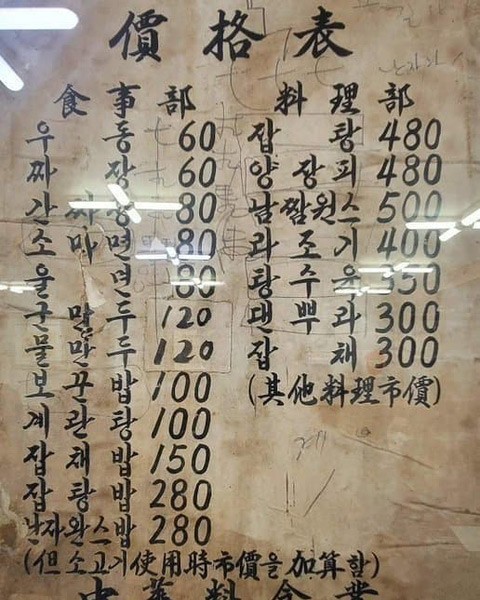 價格表
食事部
우동 60
짜장 60
간짜장 80
소마면 80
울면 80
군만두 120
물만두 120
보끈밥 100
계란탕 100
잡채밥 150
잡탕밥 280
난자완스밥 280
(但 소고기使用時市價을 加算함)
料理部
잡탕 480
양장피 480
남짬원스 500
라조기 400
탕수육 350
댄뿌라 300
잡채 300
(其他料理市價)